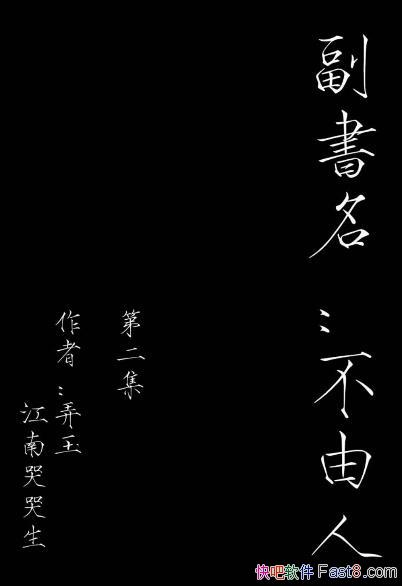 副書名：不由人
第二集
作者：弄玉
江南哭哭生
快吧软件 Fast8.com